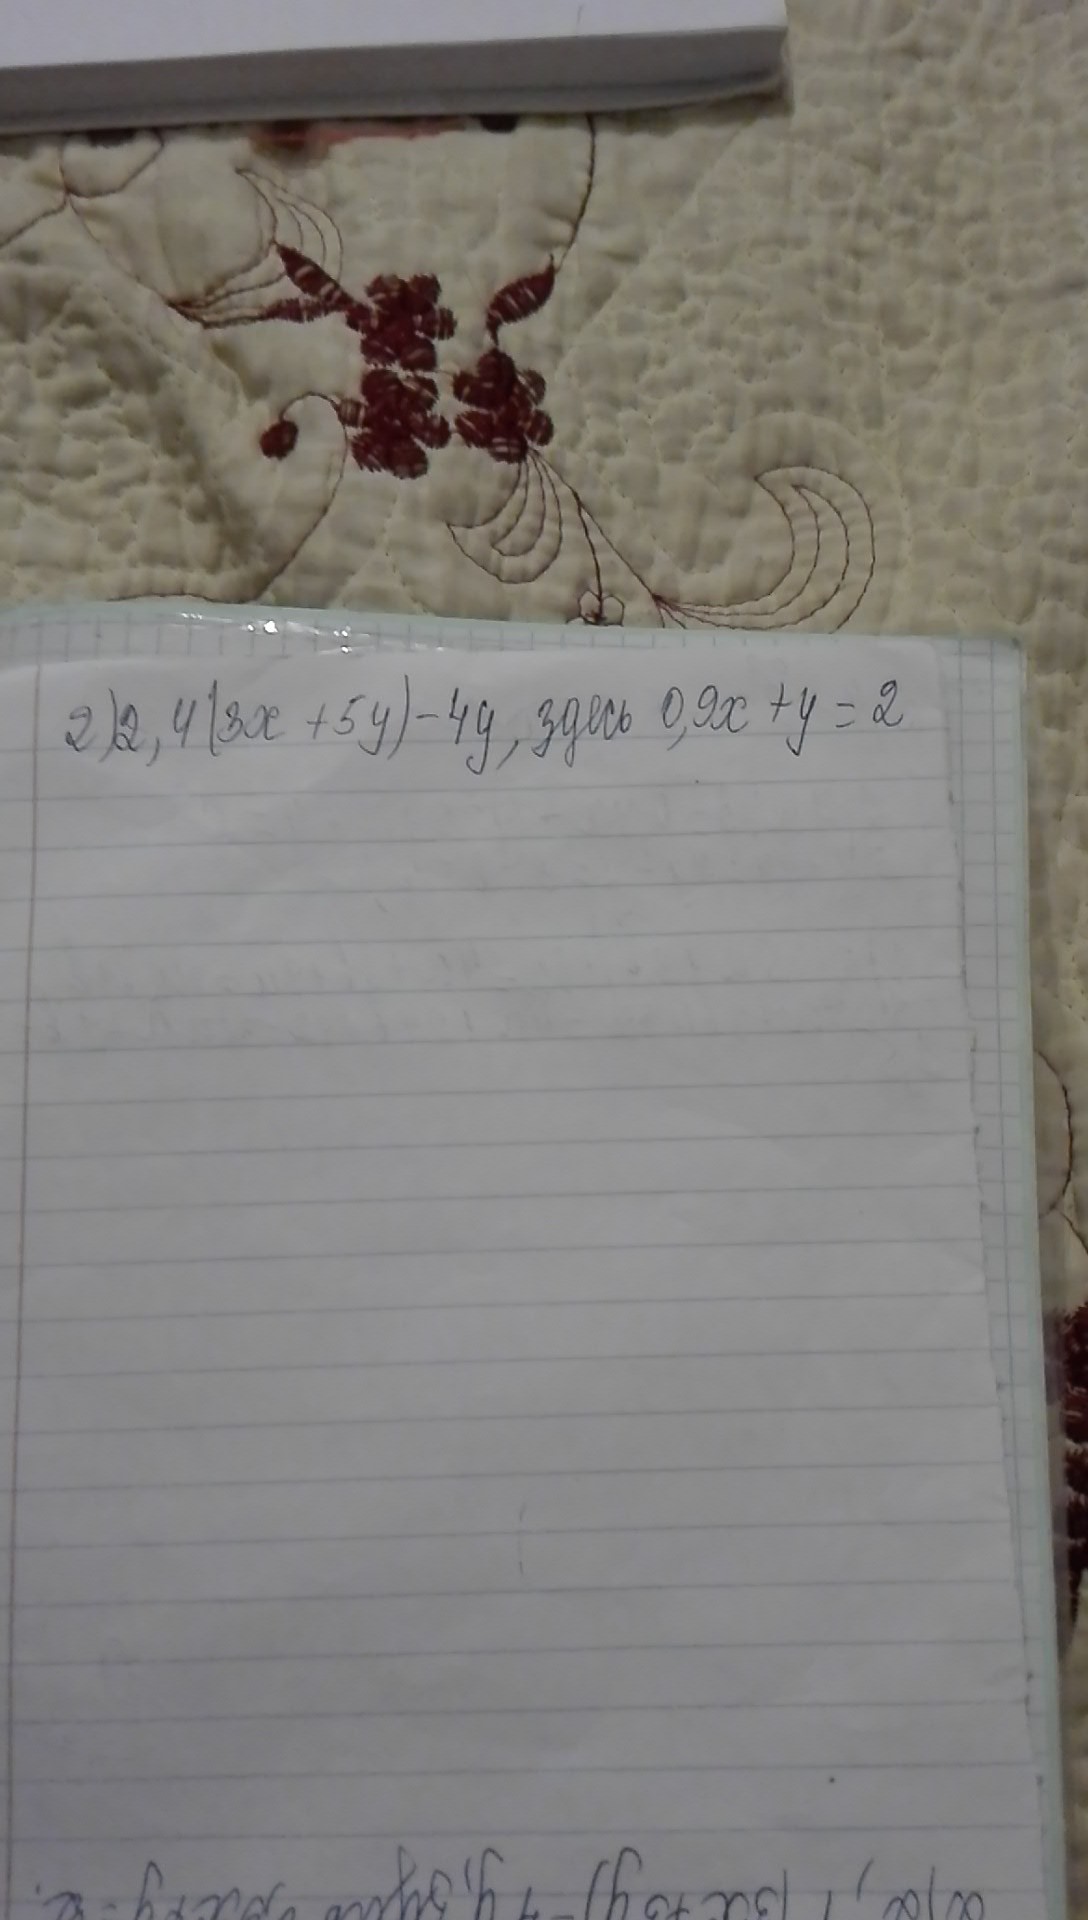 2) 2,4(3x + 5y) - 4y, здесь 0,9x + y = 2